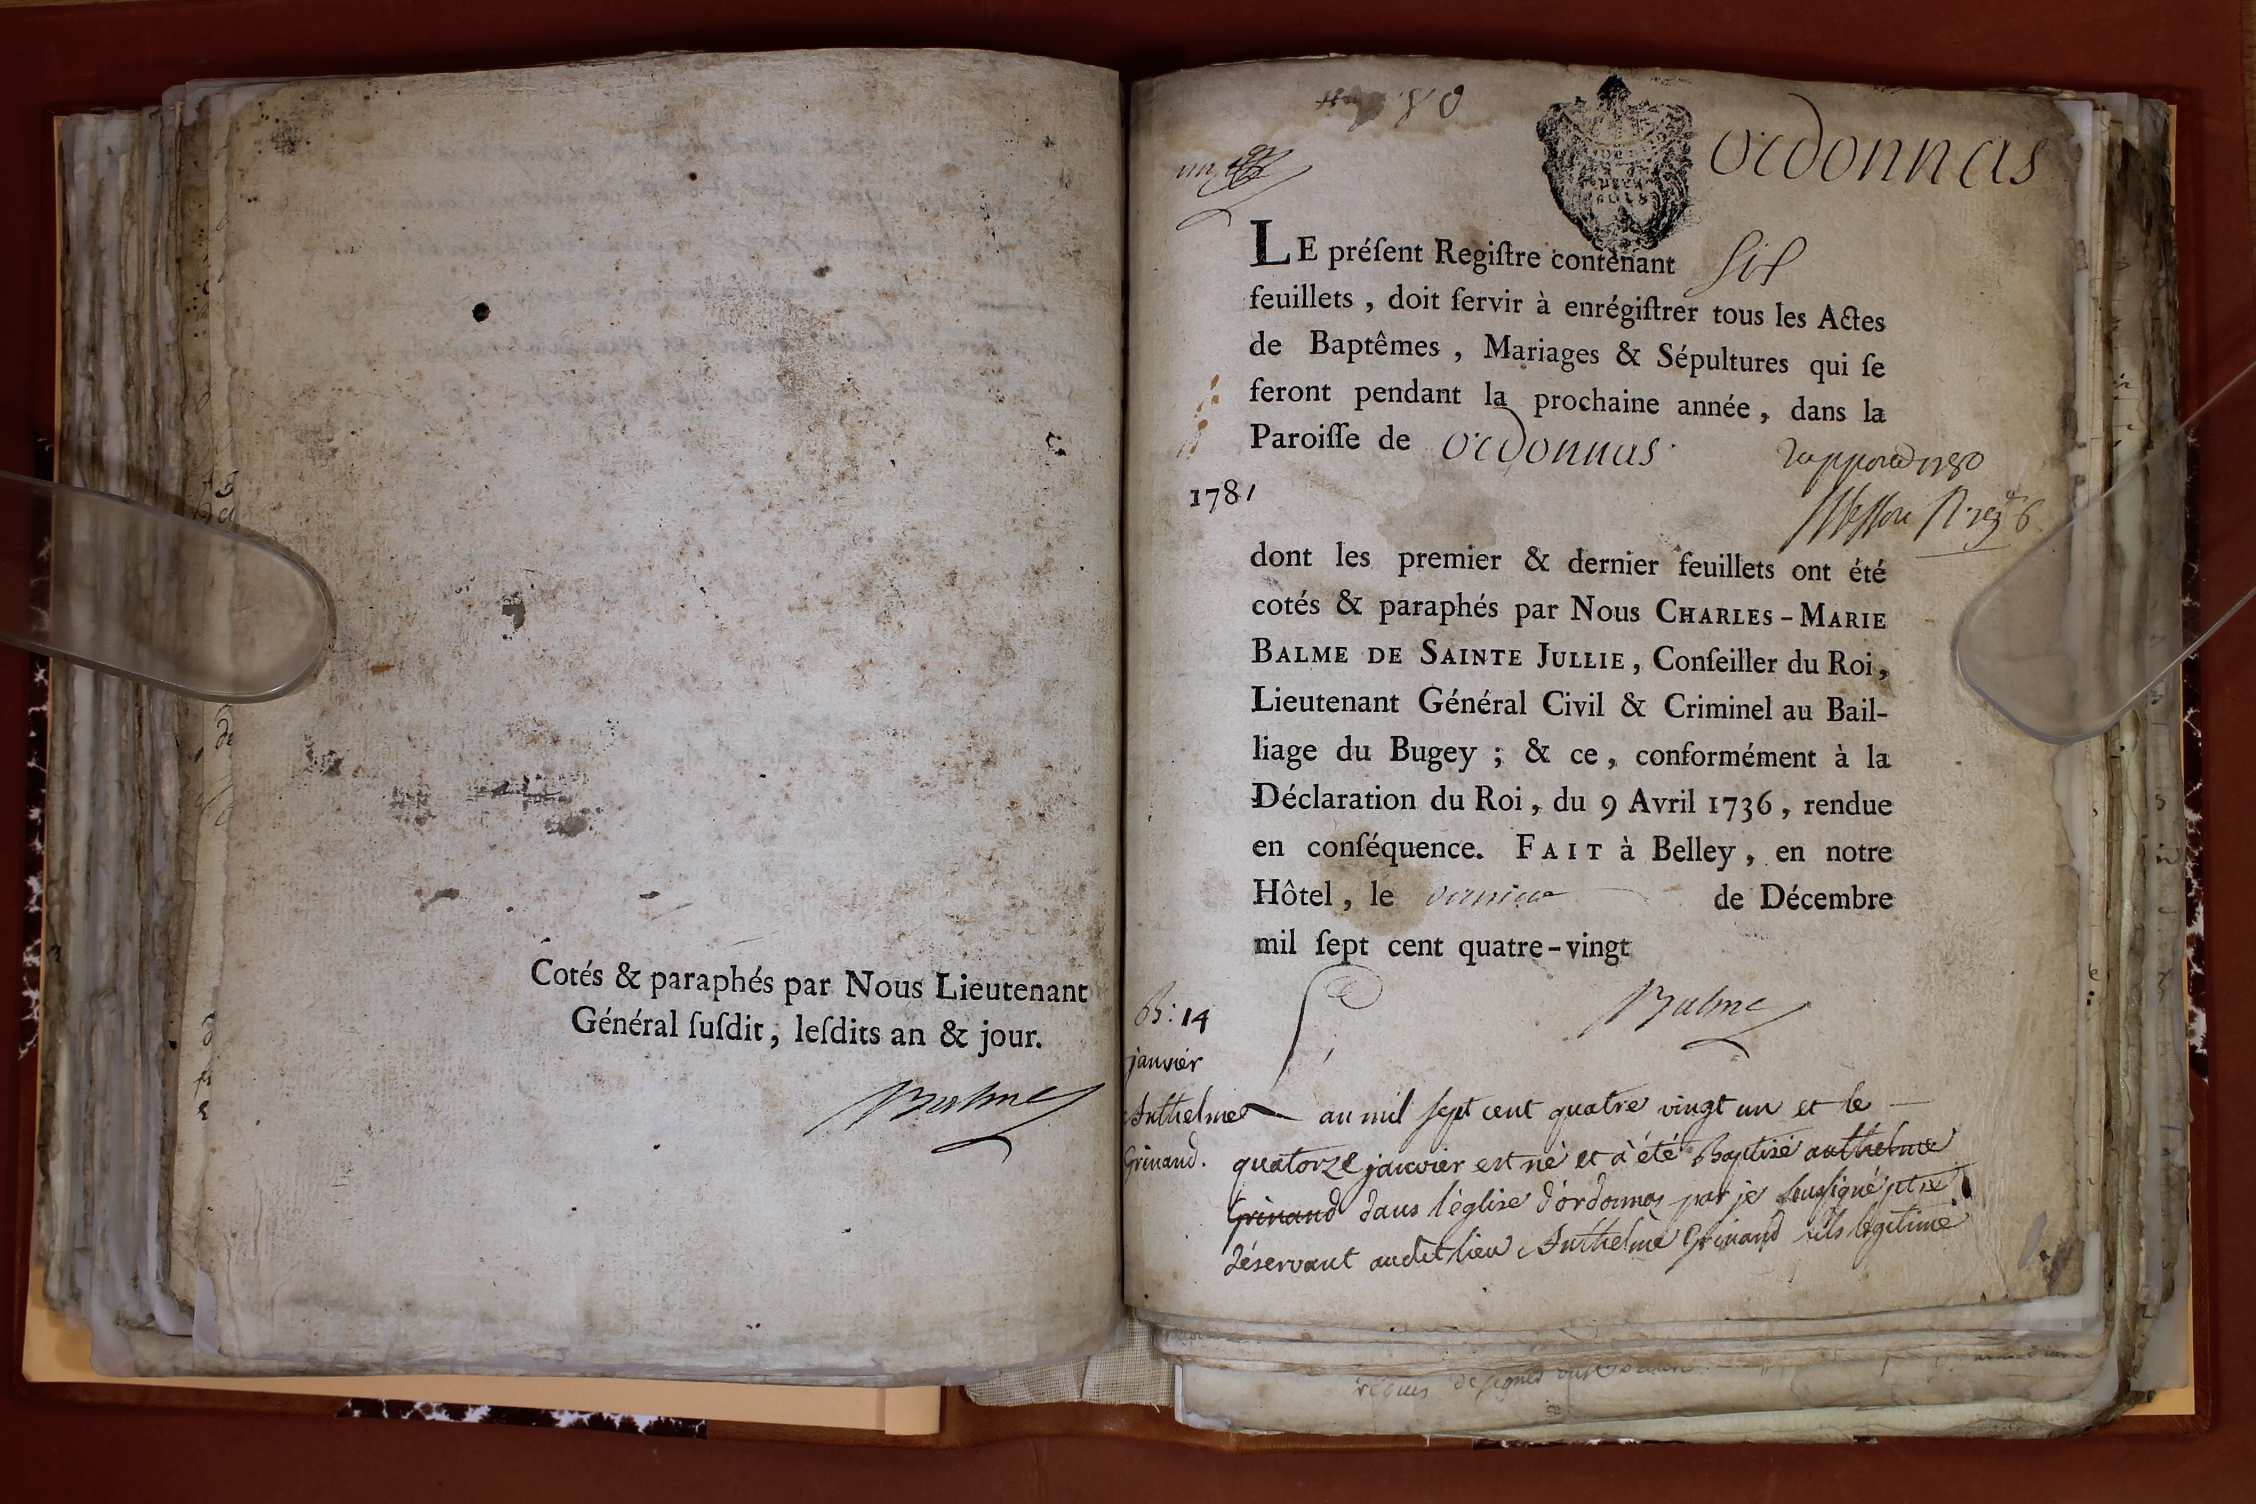 Cotés & paraphés par Nous Lieutenant
Général ſuſdit, leſdits an & jour.
Balme
ordonnas
LE préſent Regiſtre contenant six
feuillets, doit ſervir à enrégiſtrer tous les Actes
de Baptêmes, Mariages & Sépultures qui ſe
feront pendant la prochaine année, dans la
Paroiſſe de ordonnas
1781
dont les premier & dernier feuillets ont été
cotés & paraphés par Nous CHARLES-MARIE
BALME DE SAINTE JULLIE, Conſeiller du Roi,
Lieutenant Général Civil & Criminel au Bail-
liage du Bugey; & ce, conformément à la
Déclaration du Roi, du 9 Avril 1736, rendue
en conſéquence. FAIT à Belley, en notre
Hôtel, le dernier de Décembre
mil ſept cent quatre-vingt
Balme
B: 14
janvier
Anthelme
Grinand.
au mil sept cent quatre vingt un et le
quatorze janvier est né et à été Baptisé anthelme
Grinand dans l'église d'ordonnas par je soussigné ptre
déservant audit lieu Anthelme Grinand fils légitime